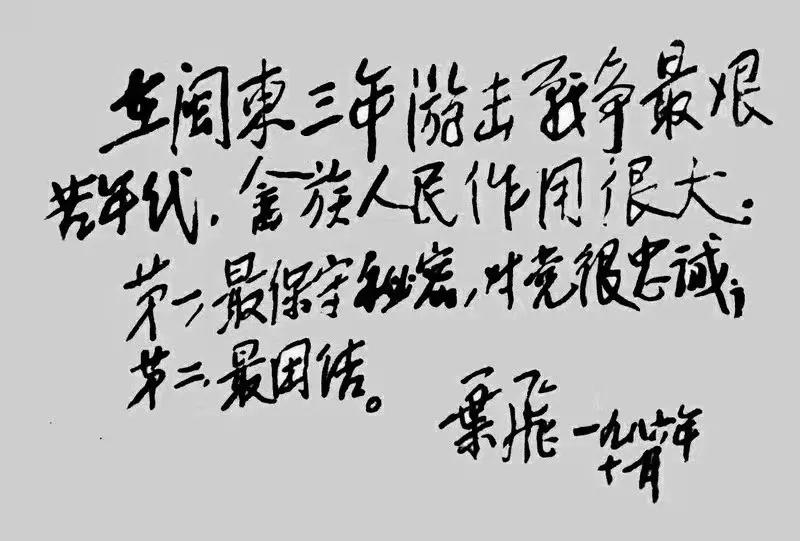 在闽東三年游击戰争最艰
苦年代，畲族人民作用很大：
第一，最保守秘密，对党很忠诚；
第二，最团结。
葉飞 一九八六年
十一月